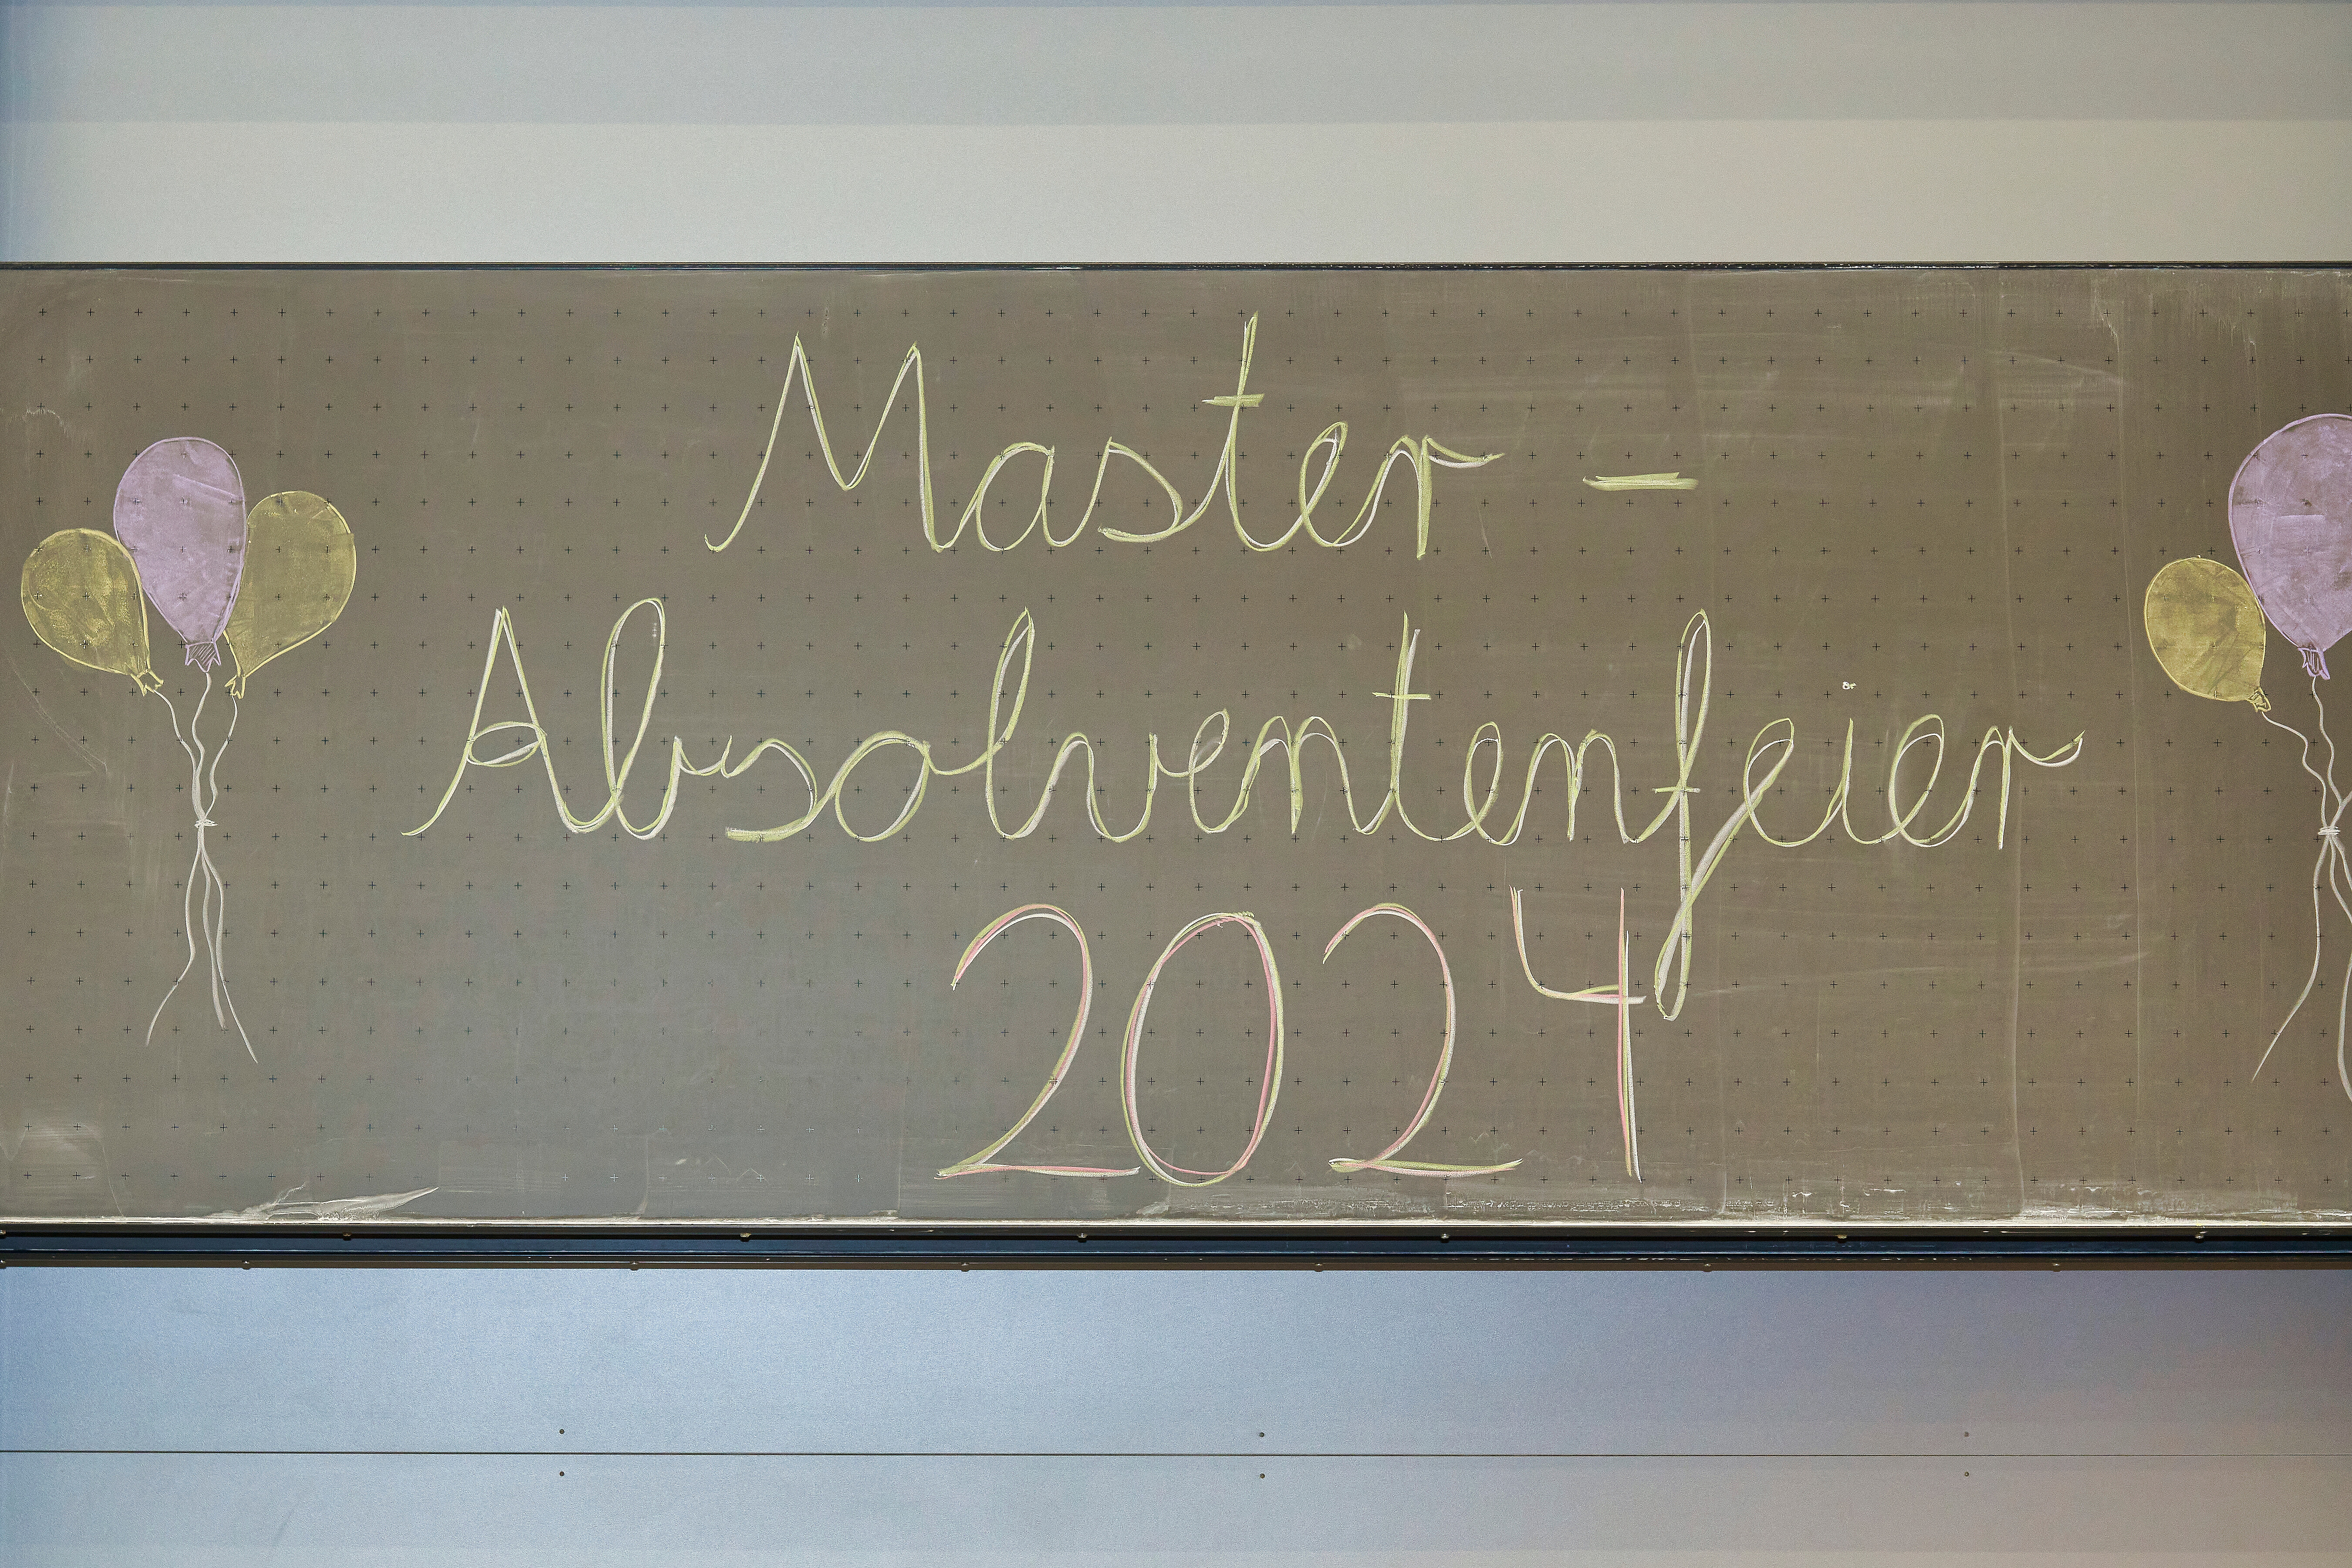 Master -
Absolventenfeier
2024